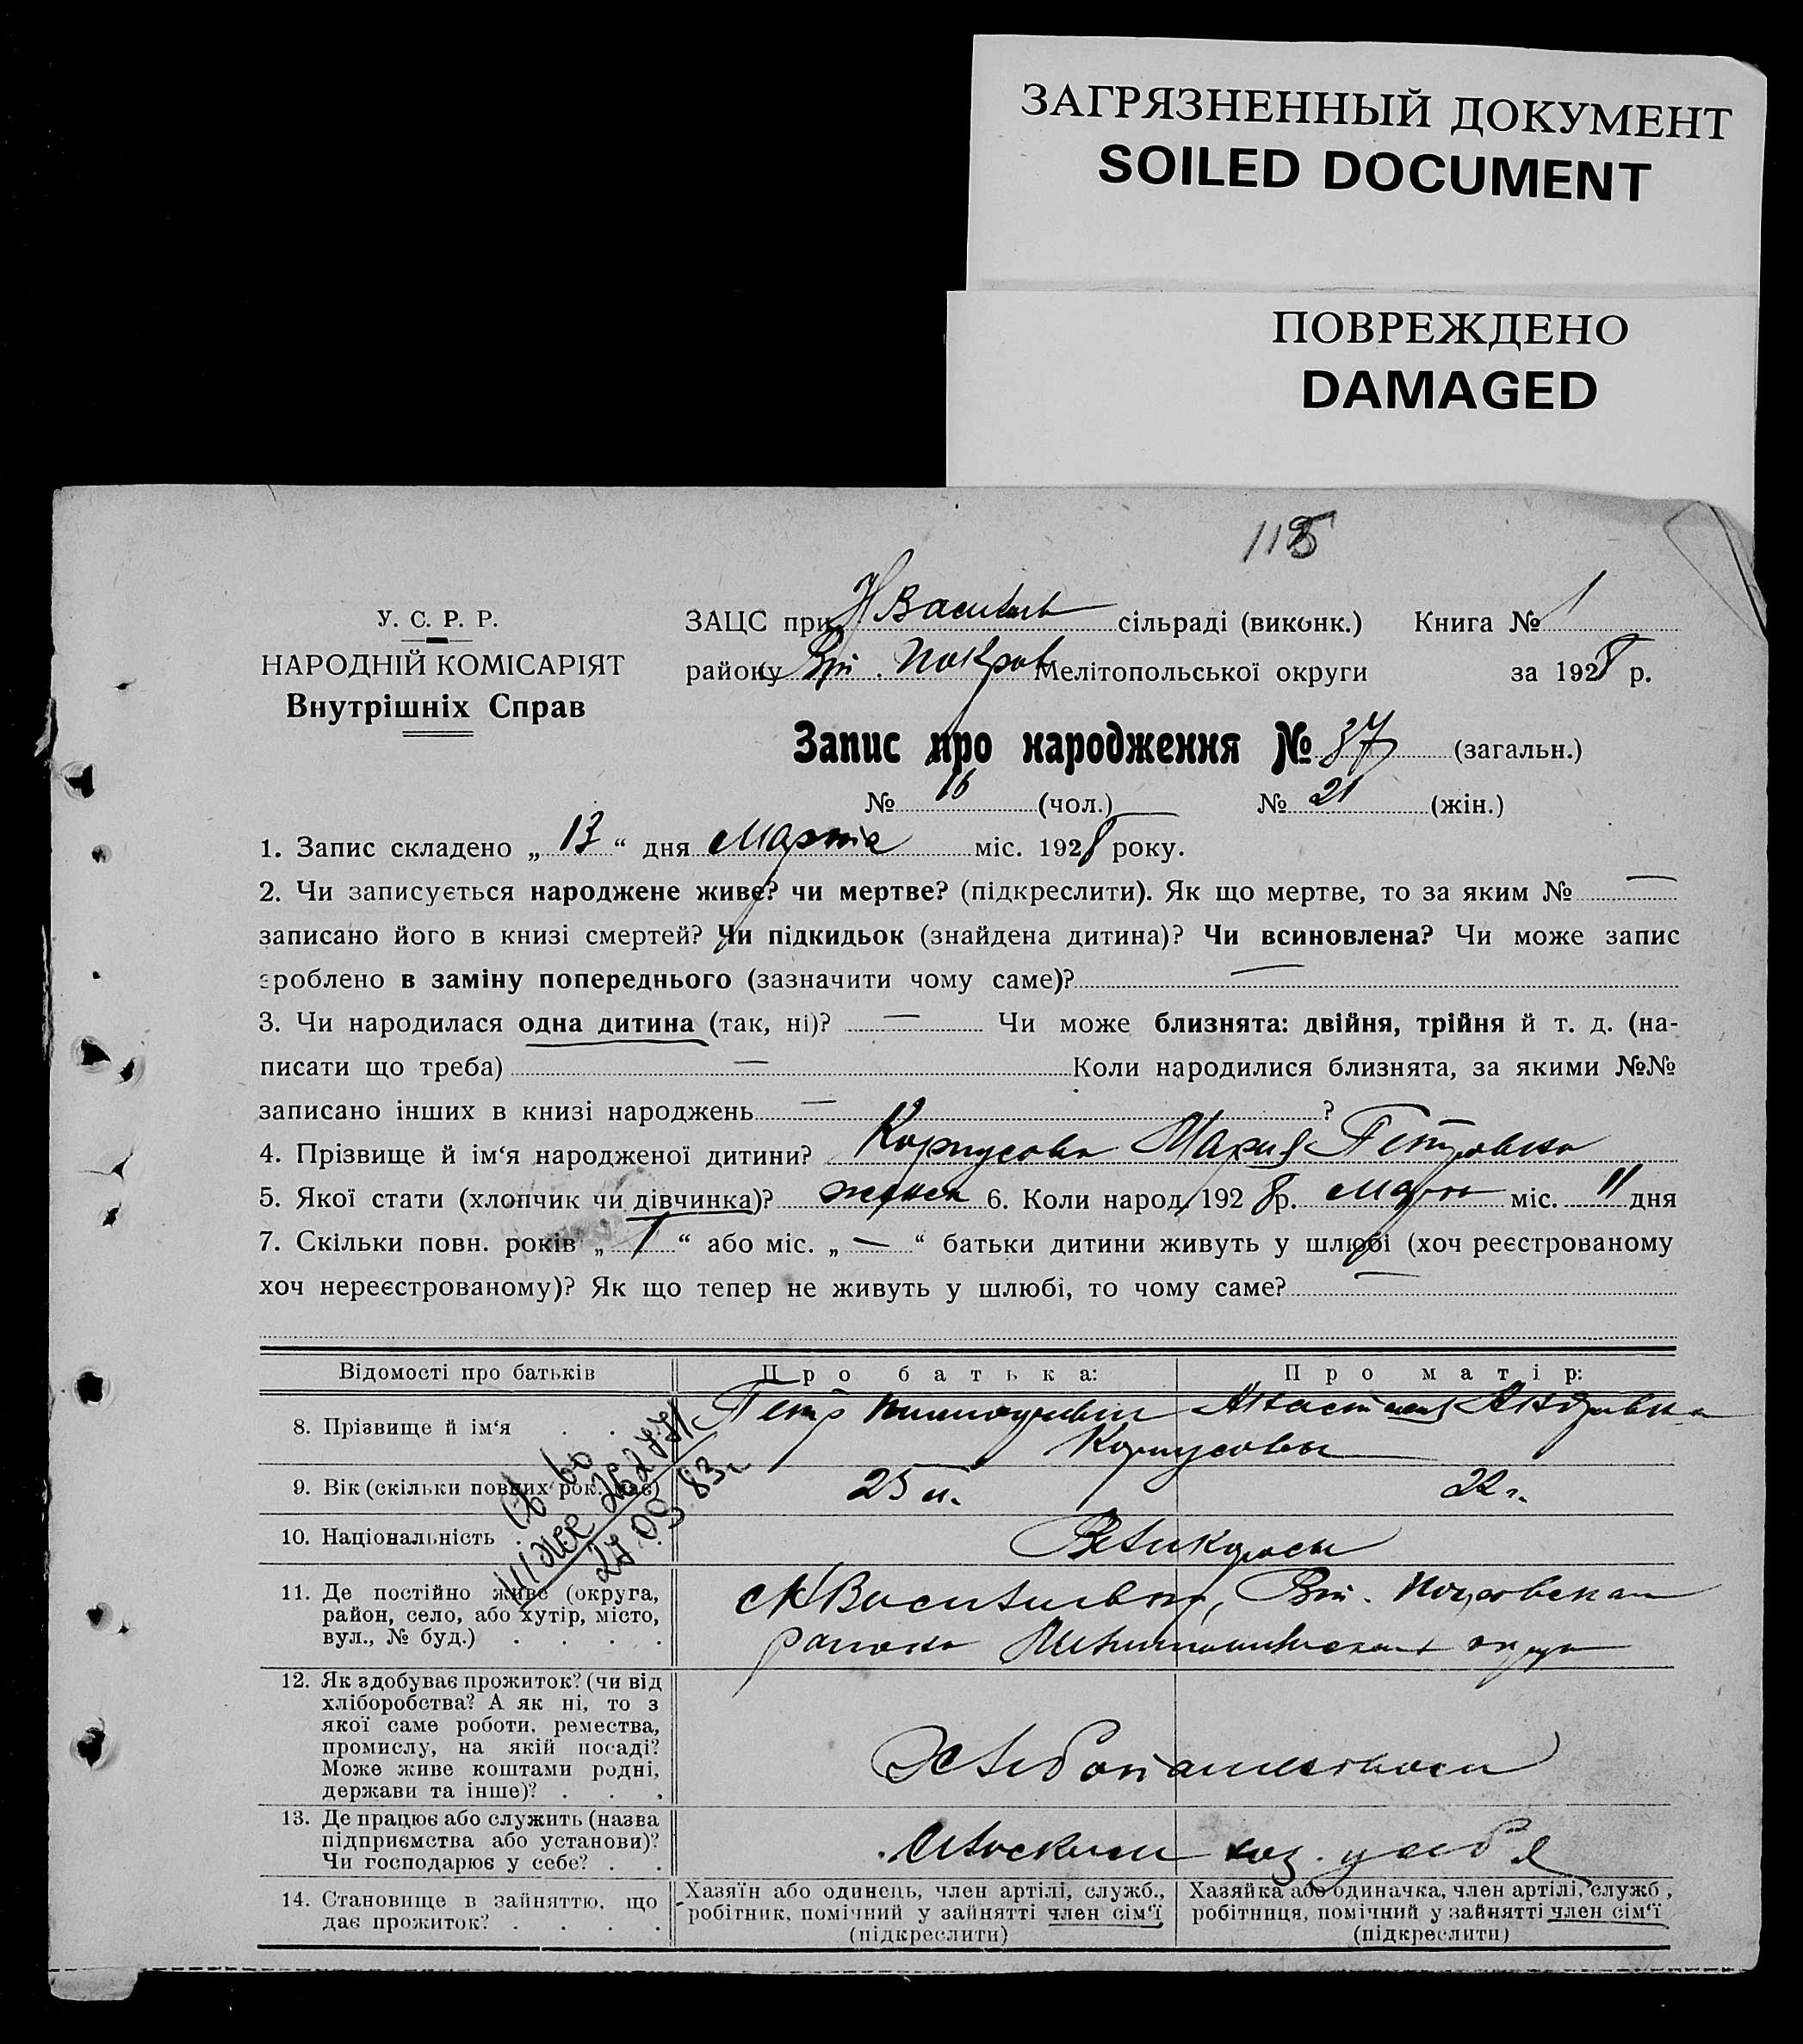 ЗАГРЯЗНЕННЫЙ ДОКУМЕНТ
SOILED DOCUMENT
ПОВРЕЖДЕНО
DAMAGED
У. С. Р. Р.
НАРОДНІЙ КОМІСАРІЯТ
Внутрішніх Справ
ЗАЦС при сільраді (виконк.) Книга № 1
району Мелітопольської округи за 1928 р.
Запис про народження № 37 (загальн.)
№ 16 (чол.) № 21 (жін.)
1. Запис складено „ 13 “ дня Марта міс. 1928 року.
2. Чи записується народжене живе? чи мертве? (підкреслити). Як що мертве, то за яким № —
записано його в книзі смертей? Чи підкидьок (знайдена дитина)? Чи всиновлена? Чи може запис
зроблено в заміну попереднього (зазначити чому саме)? —
3. Чи народилася одна дитина (так, ні)? — Чи може близнята: двійня, трійня й т. д. (на-
писати що треба) — Коли народилися близнята, за якими №№
записано інших в книзі народжень — ?
4. Прізвище й ім‘я народженої дитини? Корпусова Мария Петровна
5. Якої стати (хлопчик чи дівчинка)? женск 6. Коли народ. 1928 р. Марта міс. 11 дня
7. Скільки повн. років „ 1 “ або міс. „ — “ батьки дитини живуть у шлюбі (хоч реєстрованому
хоч нереєстрованому)? Як що тепер не живуть у шлюбі, то чому саме? —
Відомості про батьків Про батька: Про матір:
8. Прізвище й ім‘я . . Петр Анастасия Андреевна
Корпусовы
9. Вік (скільки повних рок. має) 25 л. 22 г.
10. Національність . Великоросы
11. Де постійно живе (округа,
район, село, або хутір, місто,
вул., № буд.) . . . .
с Н Васильевка, Покровская
района Мелитопольская округа
12. Як здобуває прожиток? (чи від
хліборобства? А як ні, то з
якої саме роботи, ремества,
промислу, на якій посаді?
Може живе коштами родні,
держави та інше)? . . .
Хлебопашеством
13. Де працює або служить (назва
підприємства або установи)?
Чи господарює у себе? . .
хоз. у себя
14. Становище в зайняттю, що
дає прожиток? . . . .
Хазяїн або одинець, член артілі, служб.,
робітник, помічний у зайнятті член сім‘ї
(підкреслити)
Хазяйка або одиначка, член артілі, служб.,
робітниця, помічний у зайнятті член сім‘ї
(підкреслити)